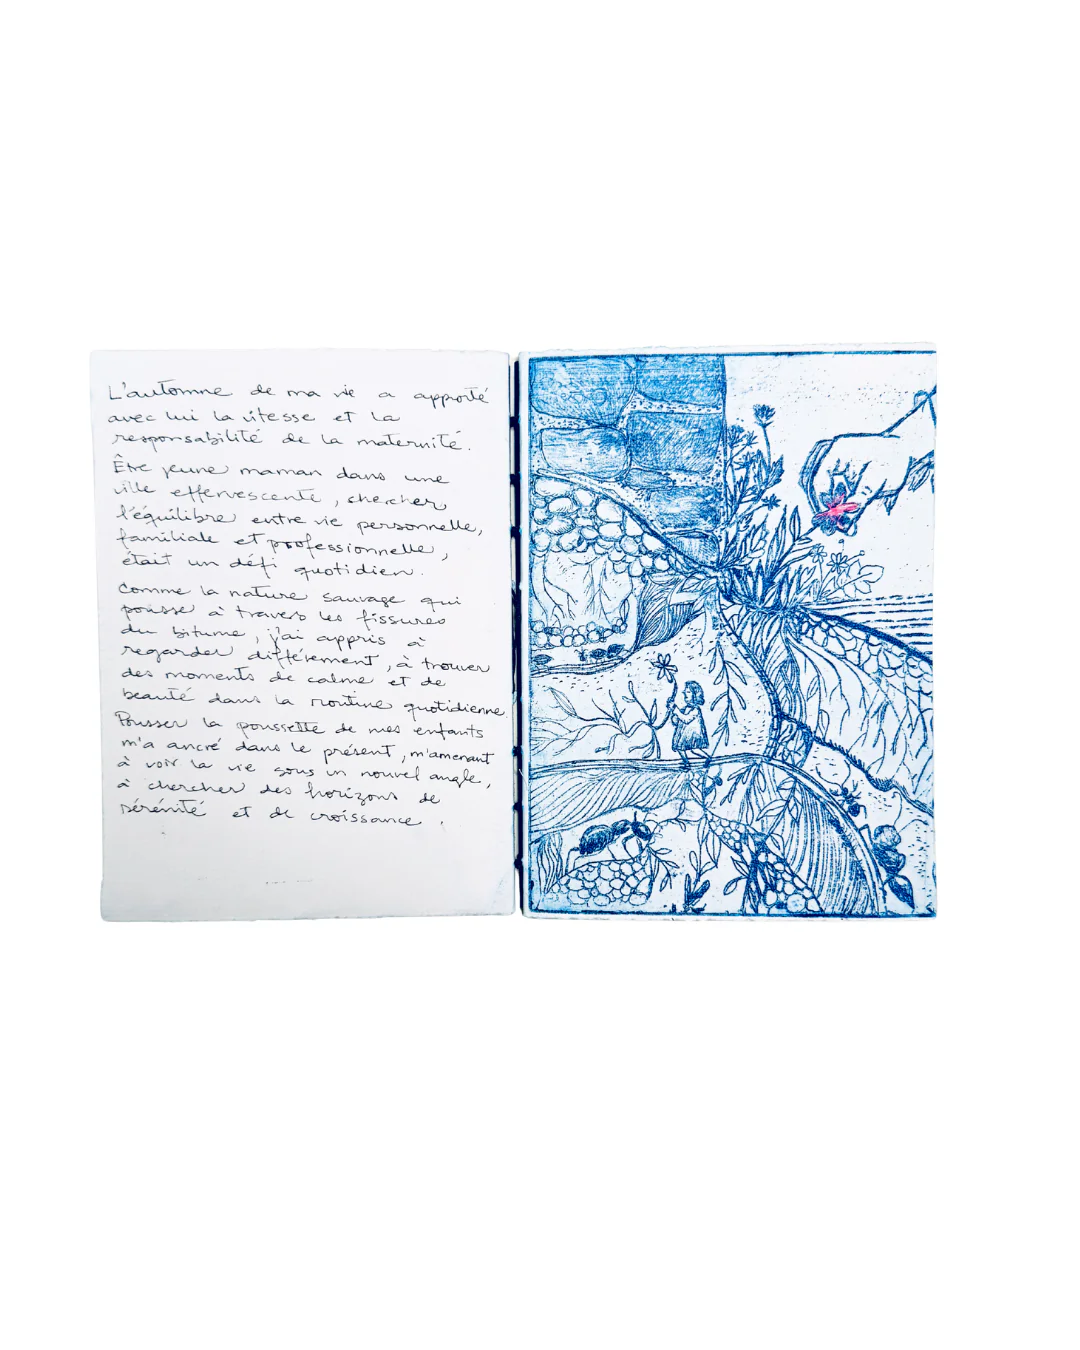 L'automne de ma vie a apporté
avec lui la vitesse et la
responsabilité de la maternité.
Être jeune maman dans une
ville effervescente, chercher
l'équilibre entre vie personnelle,
familiale et professionnelle,
était un défi quotidien.
Comme la nature sauvage qui
pousse à travers les fissures
du bitume, j'ai appris à
regarder différement, à trouver
des moments de calme et de
beauté dans la routine quotidienne
Pousser la poussette de mes enfants
m'a ancré dans le présent, m'amenant
à voir la vie sous un nouvel angle,
à chercher des horizons de
sérénité et de croissance.